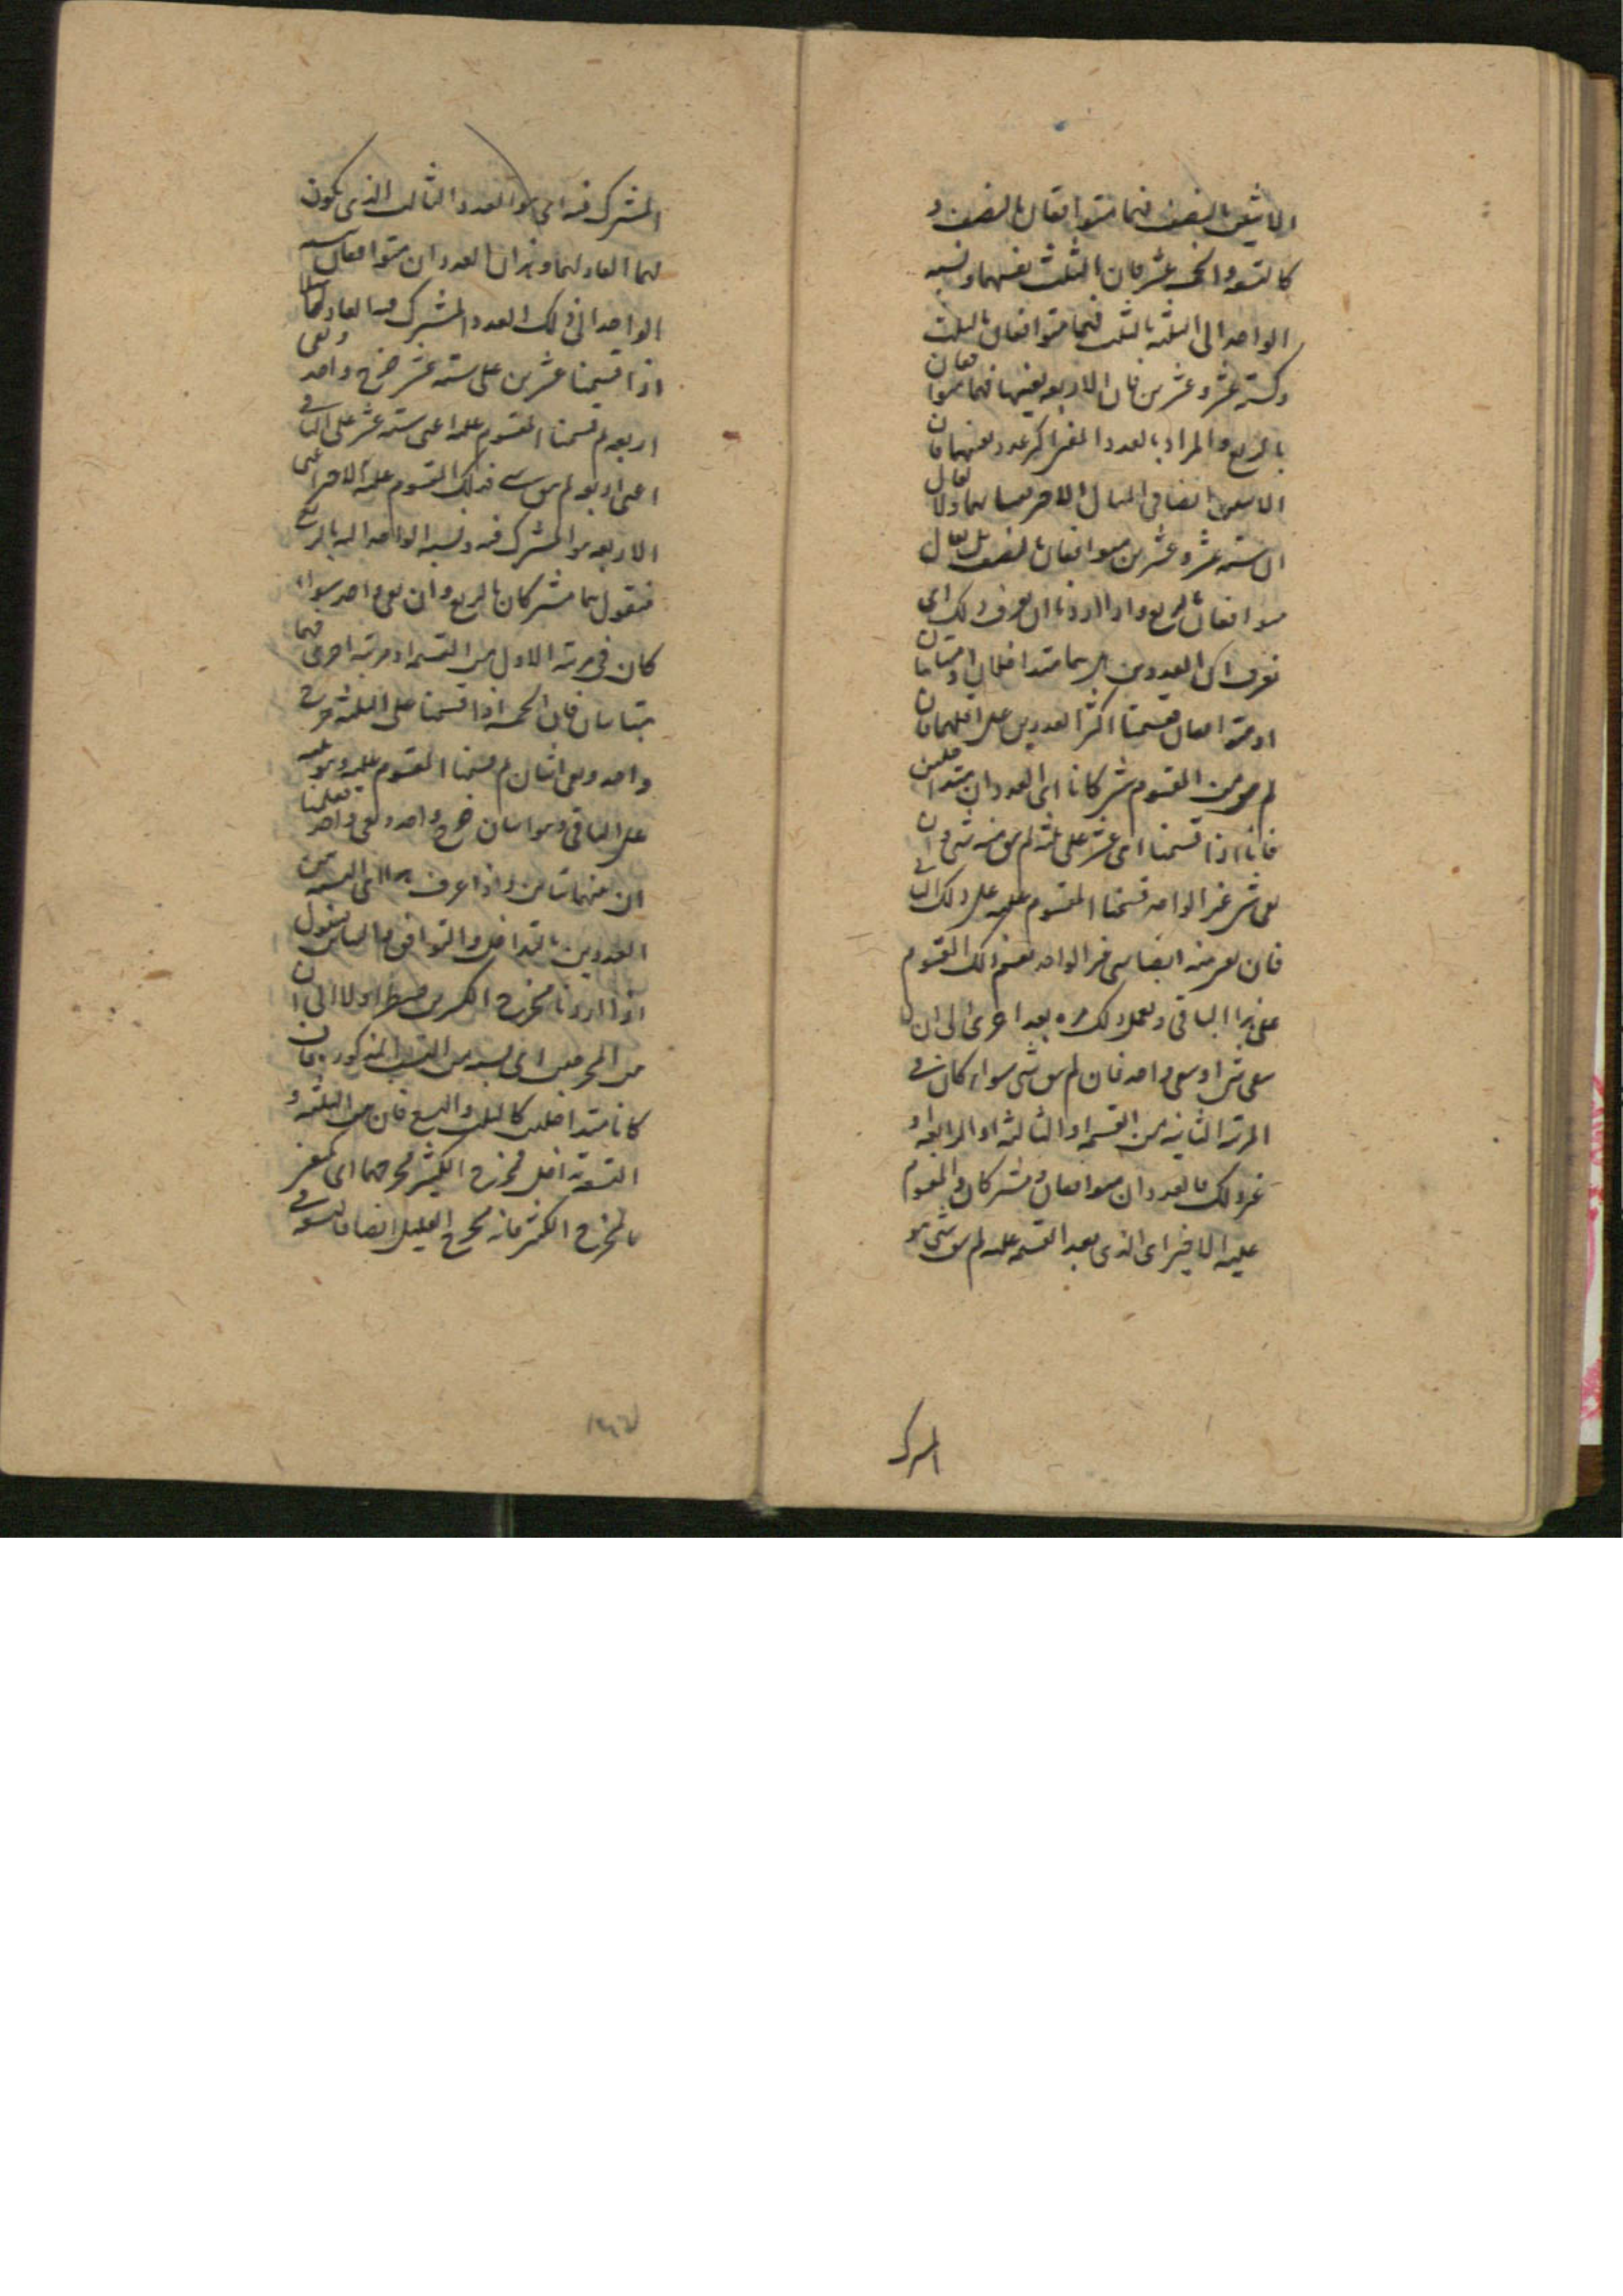 الاثنين بالنصف فهما متوافقان بالنصف و
كالتسعة والخمسة عشر فان الثلثة تفنيهما ونسبة
الواحد الى الثلثة بالثلث فهما متوافقان بالثلث
وكستة عشر وعشرين فان الاربعة يفنيهما فهما متوافقان
بالربع والمراد بالعدد المفنى اكبر عدد يفنيهما فان
الاثنين ايضا فى المثال الاخير يفنيهما ولا يقال
ان ستة عشر وعشرين متوافقان بالنصف بل يقال
متوافقان بالربع واذا اردنا ان نعرف ذلك اى
نعرف ان العددين ايهما متداخلان او متباينان
او متوافقان قسمنا اكثر العددين على اقلهما فان
لم يبق من المقسوم شئ كانا اى العددان متداخلين
فانا اذا قسمنا على ثلثة لم يبق منه شئ وان
بقى شئ غير الواحد قسمنا المقسوم عليه على ذلك الباقى
فان بقى منه ايضا شئ غير الواحد نقسم ذلك المقسوم
على هذا الباقى ونعمل ذلك مرة بعد اخرى الى ان لا
يبقى شئ او يبقى واحد فان لم يبق شئ سواء كان فى
المرتبة الثانية من القسمة او الثالثة او الرابعة او
غير ذلك فالعددان متوافقان ومشتركان والمقسوم
عليه الاخير اى الذى بعد القسمة عليه لم يبق شئ هو
المشترك
المشترك فيه اى هو العدد الثالث الذى يكون
لهما العاد لهما وهذان العددان متوافقان بنسبة
الواحد الى ذلك العدد المشترك فيه العاد لهما
اذا قسمنا عشرين على ستة عشر خرج واحد وبقى
اربعة ثم قسمنا المقسوم عليه اعنى ستة عشر على الباقى
اعنى اربعة لم يبق شئ فذلك المقسوم عليه الاخير اعنى
الاربعة هو المشترك فيه ونسبة الواحد اليه بالربع
فنقول هما مشتركان بالربع وان بقى واحد سواء
كان فى مرتبة الاولى من القسمة او مرتبة اخرى فهما
متباينان فان الخمسة اذا قسمنا على الثلثة خرج
واحد وبقى اثنان ثم قسمنا المقسوم عليه وهو ثلثة
على الباقى وهو اثنان خرج واحد وبقى واحد فعلمنا
ان بينهما تباين واذا عرف هذا اى النسبة بين
العددين بالتداخل والتوافق والتباين فنقول
اذا اردنا مخرج الكسرين ننظر اولا الى ان
بين المخرجين اى نسبة من النسب المذكورة فان
كانا متداخلين كالثلث والتسع فان بين الثلثة و
التسعة تداخل فمخرج الكثير مخرجهما اى نكتفى
بالمخرج الكثير فانه مخرج القليل ايضا فالتسعة فى